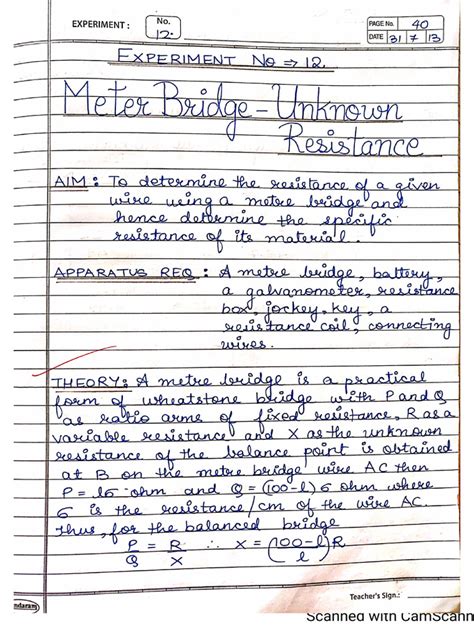 EXPERIMENT : No. 12. PAGE No. 40
DATE 31/7/13
EXPERIMENT No ⇒ 12.
Meter Bridge - Unknown
Resistance
AIM : To determine the resistance of a given
wire using a metre bridge and
hence determine the specific
resistance of its material.
APPARATUS REQ : A metre bridge, battery,
a galvanometer, resistance
box, jockey, key, a
resistance coil, connecting
wires.
THEORY : A metre bridge is a practical
form of wheatstone bridge with P and Q
as ratio arms of fixed resistance, R as a
variable resistance and X as the unknown
resistance of the balance point is obtained
at B on the metre bridge wire AC then
P = lσ ohm and Q = (100-l) σ ohm where
σ is the resistance/cm of the wire AC.
Thus, for the balanced bridge
P/Q = R/X ∴ X = (100-l/l)R
ndaram
Teacher's Sign.:
Scanned with CamScann